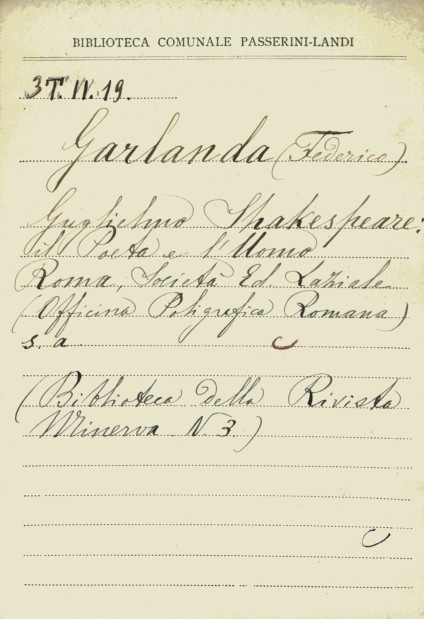 BIBLIOTECA COMUNALE PASSERINI-LANDI
3T. II. 19.
Garlanda (Federico)
Guglielmo Shakespeare:
il Poeta e l'Uomo
Roma, Società Ed. Laziale
(Officina Poligrafica Romana)
s. a.
(Biblioteca della Rivista
Minerva N. 3)